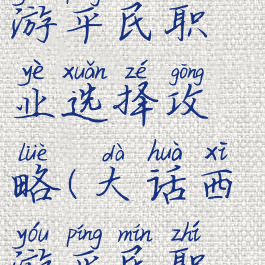 游平民职
yè xuǎn zé gōng
业选择攻
lüè dà huà xī
略(大话西
yóu píng mín zhí
游平民职